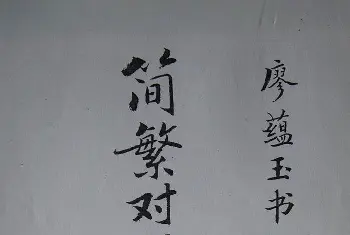 廖蕴玉书
简繁对